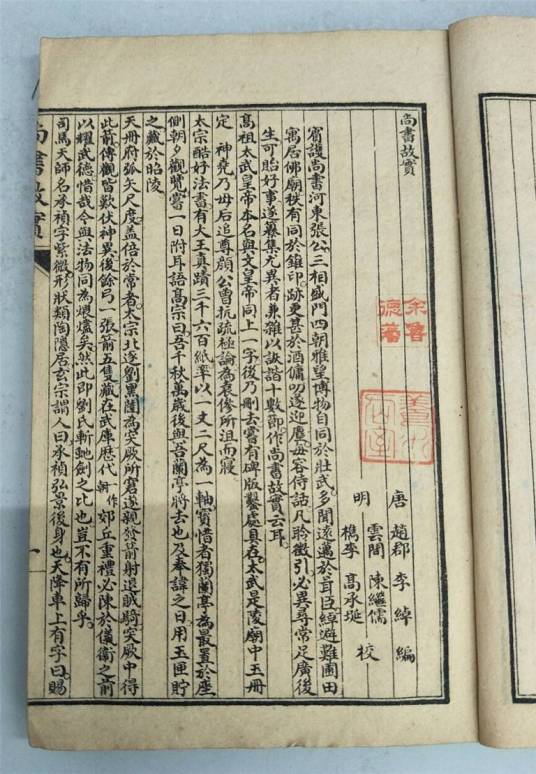 尚書故實
唐 趙郡 李綽 編
明 雲間 陳繼儒
檇李 高承埏 校
賓護尚書河東張公三相盛門四朝雅望博物自同於壯武多聞遠邁於胥臣綽避難圃田
寓居佛廟秩有同於錐印跡更甚於酒傭叨遂迎塵毎容侍話凡聆徵引必異尋常足廣後
生可貽好事遂纂集尤異者兼雜以詼諧十數節作尚書故實云耳
高祖太武皇帝本名與文皇帝同上一字後乃刪去嘗有碑版鑿處具在太武是陵廟中玉冊
定 神堯乃毋后追尊顏公曾抗疏極論為袁傪所沮而寢
太宗酷好法書有大王真蹟三千六百紙率以一丈二尺為一軸寶惜者獨蘭亭為最置於座
側朝夕觀覽嘗一日附耳語高宗曰吾千秋萬歲後與吾蘭亭將去也及奉諱之日用玉匣貯
之藏於昭陵
天冊府弧矢尺度蓋倍於常者太宗北逐劉黑闥為突厥所窘遂親發箭射退賊騎突厥中得
此箭傳觀皆歎伏神異後餘弓一張箭五隻藏在武庫歷代一作朝郊丘重禮必陳於儀衛之前
以耀武德惜哉今與法物同為煨燼矣然此即劉氏斬虵劍之比也豈不有所歸乎
司馬天師名承禎字紫微形狀類陶隱居玄宗謂人曰承禎弘景後身也天降車上有字曰賜
尚書故實
一